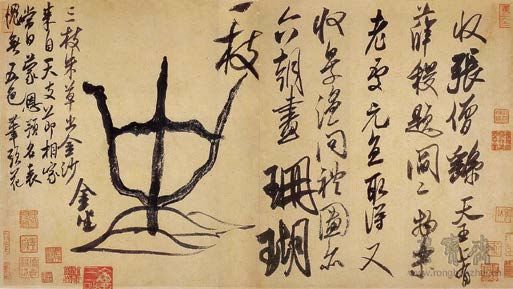 收張僧繇天王上有
薛稷題閻二物樂
老處元直取得又
收景溫問禮圖亦
六朝畫珊瑚
一枝
金坐
三枝朱草出金沙
來自天支節相家
當日蒙恩預名表
愧無五色筆頭花